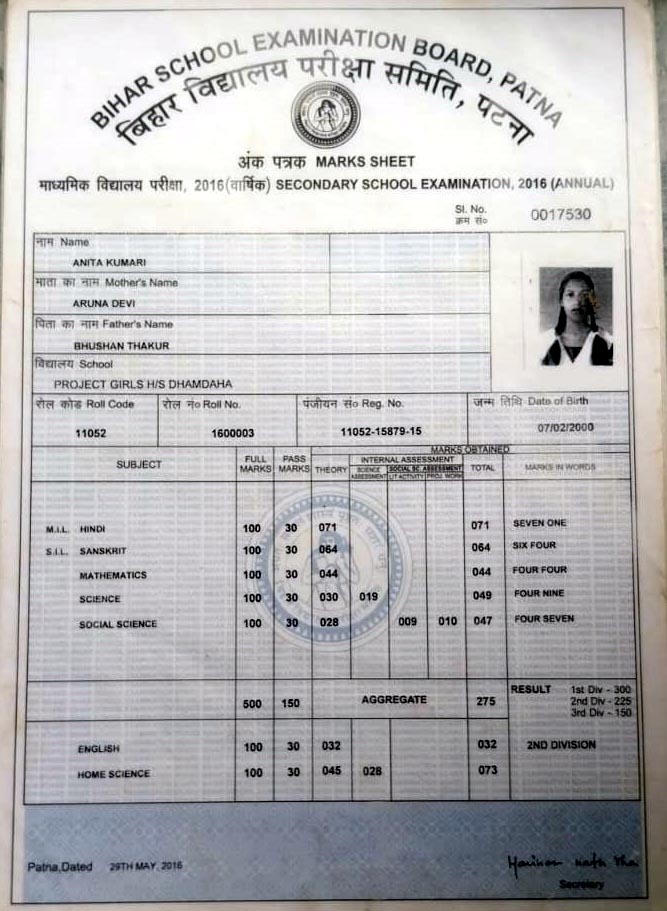 BIHAR SCHOOL EXAMINATION BOARD, PATNA
बिहार विद्यालय परीक्षा समिति, पटना
अंक पत्रक MARKS SHEET
माध्यमिक विद्यालय परीक्षा, 2016(वार्षिक) SECONDARY SCHOOL EXAMINATION, 2016 (ANNUAL)
Sl. No. 0017530
क्रम सं०
नाम Name
ANITA KUMARI
माता का नाम Mother's Name
ARUNA DEVI
पिता का नाम Father's Name
BHUSHAN THAKUR
विद्यालय School
PROJECT GIRLS H/S DHAMDAHA
रोल कोड Roll Code रोल नं० Roll No. पंजीयन सं० Reg. No. जन्म तिथि Date of Birth
11052 1600003 11052-15879-15 07/02/2000
MARKS OBTAINED
SUBJECT FULL MARKS PASS MARKS THEORY INTERNAL ASSESSMENT TOTAL MARKS IN WORDS
SCIENCE ASSESSMENT SOCIAL SC. ASSESSMENT
LIT ACTIVITY PROJ. WORK
M.I.L. HINDI 100 30 071 071 SEVEN ONE
S.I.L. SANSKRIT 100 30 064 064 SIX FOUR
MATHEMATICS 100 30 044 044 FOUR FOUR
SCIENCE 100 30 030 019 049 FOUR NINE
SOCIAL SCIENCE 100 30 028 009 010 047 FOUR SEVEN
500 150 AGGREGATE 275 RESULT 1st Div - 300
2nd Div - 225
3rd Div - 150
ENGLISH 100 30 032 032 2ND DIVISION
HOME SCIENCE 100 30 045 028 073
Patna,Dated 29TH MAY, 2016
Secretary